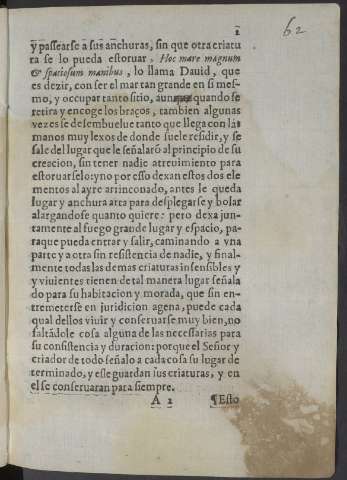 2
62
y passearse à sus anchuras, sin que otra criatu
ra se lo pueda estoruar, Hoc mare magnum
& spatiosum manibus, lo llama Dauid, que
es dezir, con ser el mar tan grande en si mes-
mo, y occupar tanto sitio, aunque quando se
retira y encoge los braços, tambien algunas
vezes se desembuelue tanto que llega con las
manos muy lexos de donde suele residir, y se
sale del lugar que le señalarõ al principio de su
creacion, sin tener nadie atreuimiento para
estoruarselo: y no por esso dexan estos dos ele
mentos al ayre arrinconado, antes le queda
lugar y anchura arta para desplegarse y bolar
alargandose quanto quiere: pero dexa jun-
tamente al fuego grande lugar y espacio, pa-
raque pueda entrar y salir, caminando a vna
parte y a otra sin resistencia de nadie, y final-
mente todas las demas criaturas insensibles y
y viuientes tienen de tal manera lugar señala
do para su habitacion y morada, que sin en-
tremeterse en juridicion agena, puede cada
qual dellos viuir y conseruarse muy bien, no
faltãdole cosa alguna de las necessarias para
su consistencia y duracion: porque el Señor y
criador de todo señalo a cada cosa su lugar de
terminado, y esse guardan sus criaturas, y en
el se conseruaran para siempre.
A 2 ¶Esto